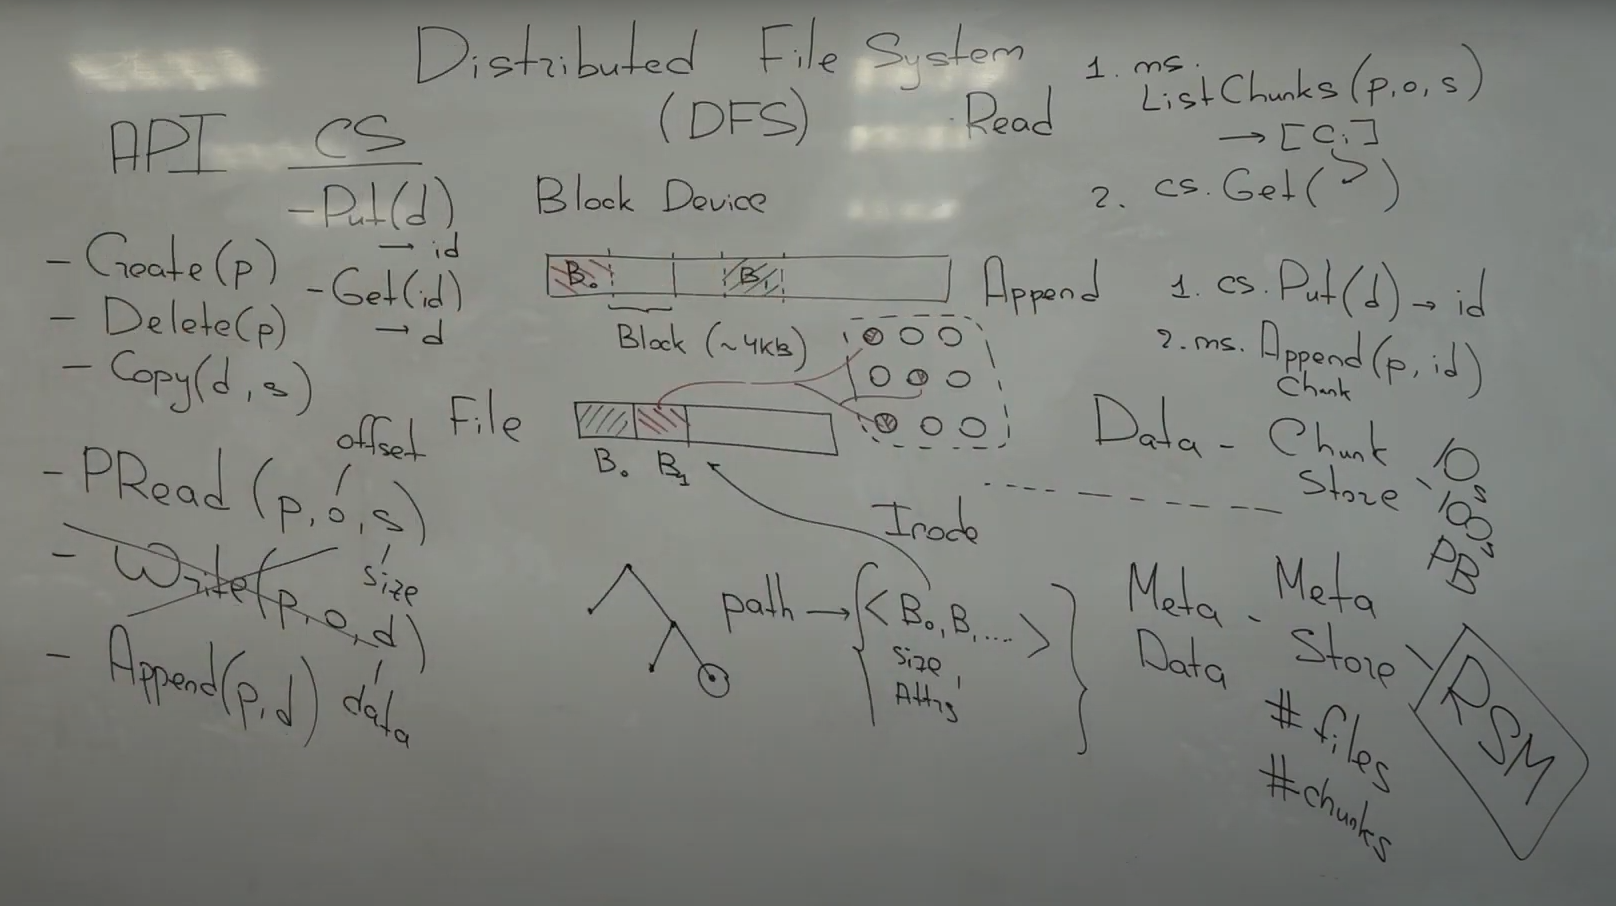 Distributed File System
(DFS)
API
- Create(p)
- Delete(p)
- Copy(d, s)
offset
- PRead(p, o, s)
size
- Write(p, o, d)
data
- Append(p, d)
CS
- Put(d)
→ id
- Get(id)
→ d
Block Device
B0 B1
Block (~4KB)
File
B0 B1
Inode
path → { < B0, B1, .... >
size,
Attrs }
Read
1. ms.
ListChunks(p, o, s)
→ [Ci]
2. cs.Get( )
Append
1. cs.Put(d) → id
2. ms.Append(p, id)
Chunk
Data - Chunk
Store
10s
100s
PB
Meta - Meta
Data Store
RSM
# files
# chunks